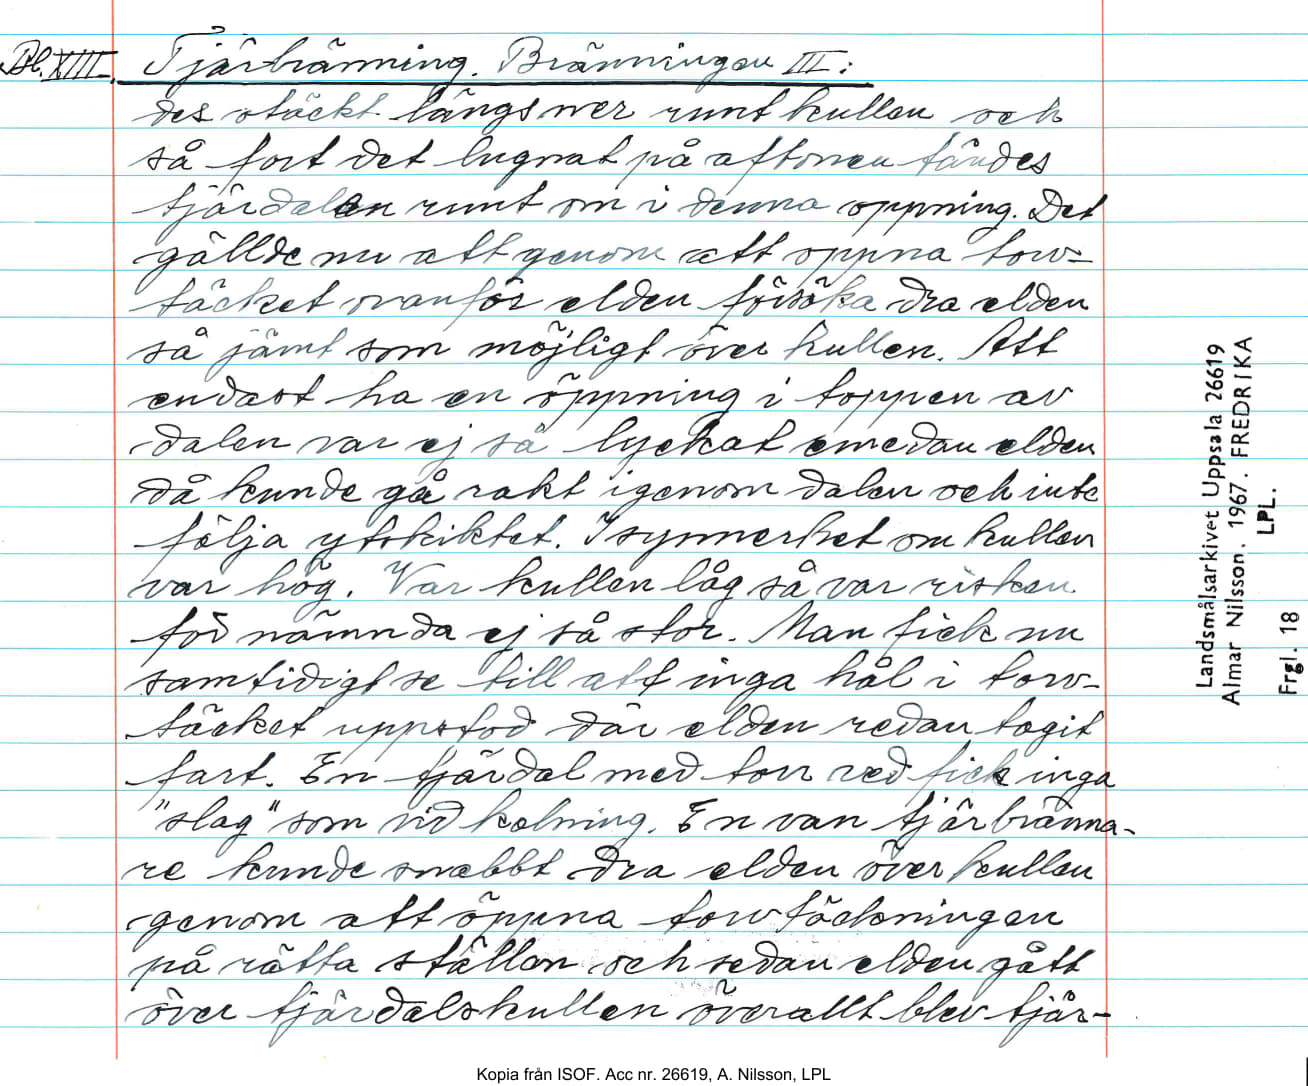 Bl. XIII. Tjärbränning. Bränningen III:
des stäckt längs ner runt kullen och
så fort det lugnat på aftonen tändes
tjärdalen runt om i denna öppning. Det
gällde nu att genom att öppna torv-
täcket ovanför elden försöka dra elden
så jämt som möjligt över kullen. Att
endast ha en öppning i toppen av
dalen var ej så lyckat emedan elden
då kunde gå rakt igenom dalen och inte
följa ytskiktet. Isynnerhet om kullen
var hög. Var kullen låg så var risken
för nämnda ej så stor. Man fick nu
samtidigt se till att inga hål i torv-
täcket uppstod där elden redan tagit
fart. En tjärdal med torr ved fick inga
"slag" som vid kolning. En van tjärbränna-
re kunde snabbt dra elden över kullen
genom att öppna torvtäckningen
på rätta ställen och sedan elden gått
över tjärdalskullen överallt blev tjär-
Landsmålsarkivet Uppsala 26619
Almar Nilsson. 1967. FREDRIKA
LPL.
Frgl. 18
Kopia från ISOF. Acc nr. 26619, A. Nilsson, LPL